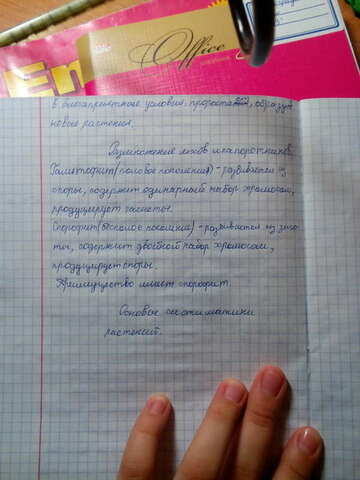 Office
En
в благоприятные условия, прорастает, образуя
новые растения.
Размножение мхов и папоротников.
Гаметофит (половое поколение) - развивается из
споры, содержит одинарный набор хромосом,
продуцирует гаметы.
Спорофит (бесполое поколение) - развивается из зиго-
ты, содержит двойной набор хромосом,
продуцирует споры.
Преимущество имеет спорофит.
Основы систематики
растений.